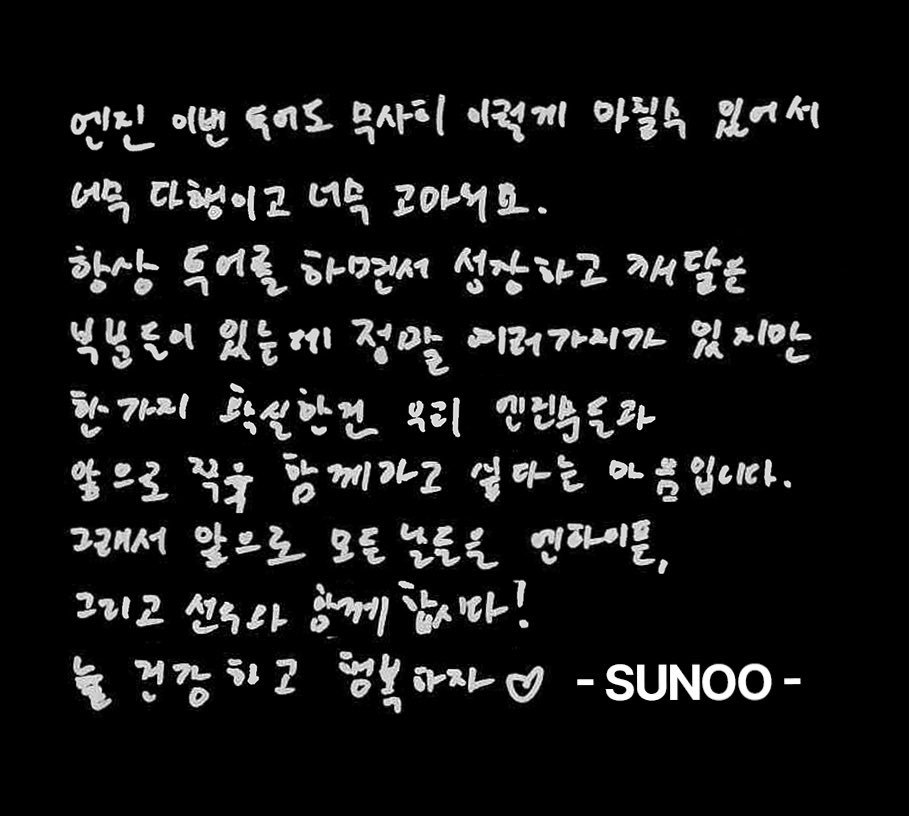 엔진 이번 투어도 무사히 이렇게 마칠수 있어서
너무 다행이고 너무 고마워요.
항상 투어를 하면서 성장하고 깨달은
부분들이 있는데 정말 여러가지가 있지만
한가지 확실한건 우리 엔진분들과
앞으로 쭉 함께하고 싶다는 마음입니다.
그래서 앞으로 모든 날들을 엔하이픈,
그리고 선우와 함께 합시다!
늘 건강하고 행복하자♡ - SUNOO -